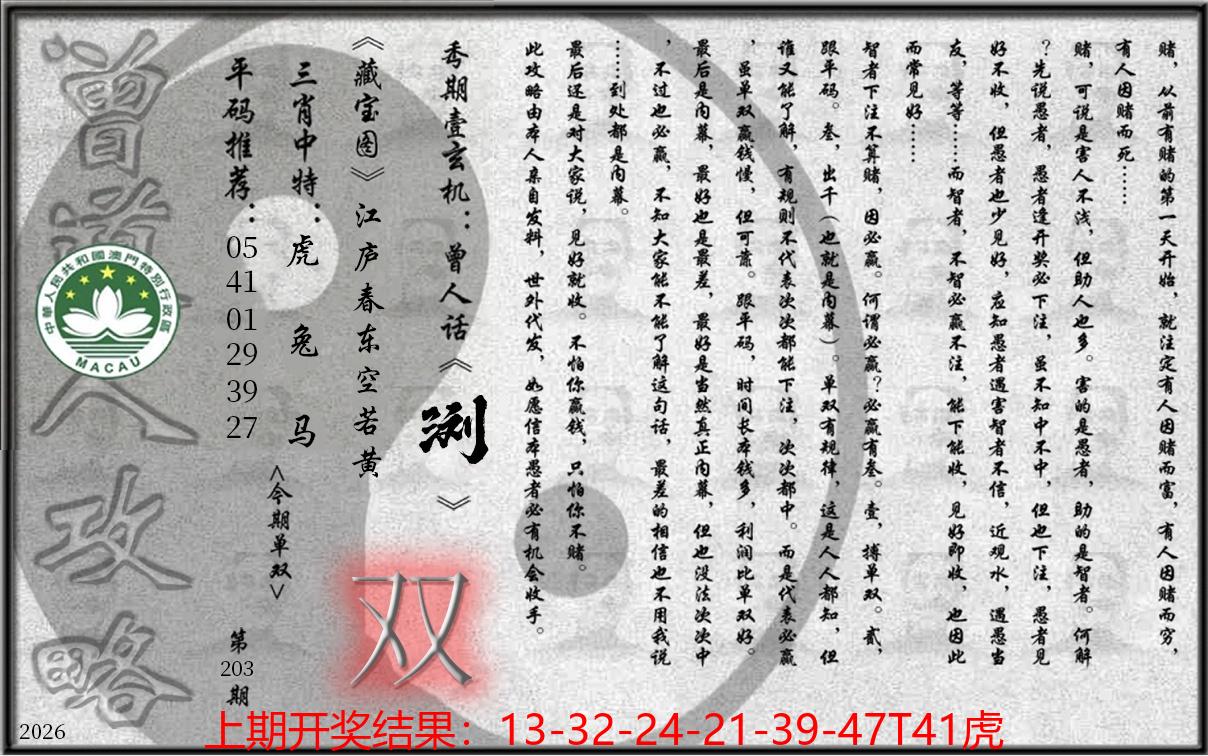 赌，从前有赌的第一天开始，就注定有人因赌而富，有人因赌而穷，
有人因赌而死……
赌，可说是害人不浅，但助人也多。害的是愚者，助的是智者。何解
？先说愚者，愚者逢开奖必下注，虽不知中不中，但也下注，愚者见
好不收，但愚者也少见好，应知愚者遇害智者不信，近观水，遇愚当
友，等等……而智者，不智必赢不注，能下能收，见好即收，也因此
而常见好……
智者下注不算赌，因必赢。何谓必赢？必赢有叁。壹，搏单双。贰，
跟平码。叁，出千（也就是内幕）。单双有规律，这是人人都知，但
谁又能了解，有规则不代表次次都能下注，次次都中。而是代表必赢
，虽单双赢钱慢，但可靠。跟平码，时间长本钱多，利润比单双好。
最后是内幕，最好也是最差，最好是当然真正内幕，但也没法次次中
，不过也必赢，不知大家能不能了解这句话，最差的相信也不用我说
……到处都是内幕。
最后还是对大家说，见好就收。不怕你赢钱，只怕你不赌。
此攻略由本人亲自发料，世外代发，如愿信本愚者必有机会收手。
秀期壹玄机：曾人话《浏》
《藏宝图》江庐春东空若黄
三肖中特：虎 兔 马
平码推荐：05 41 01 29 39 27
<今期单双>
双
第203期
曾道人攻略
中華人民共和國澳門特別行政區
MACAU
2026
上期开奖结果：13-32-24-21-39-47T41虎